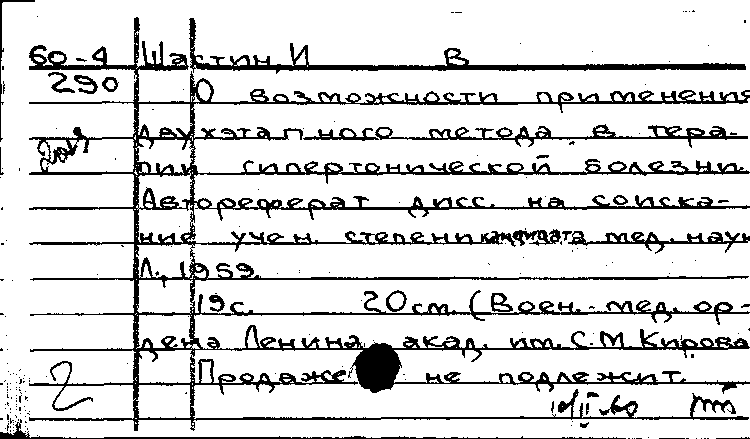 60-4 Шастин, И В
290 О возможности применения
двухэтапного метода в тера-
пии гипертонической болезни.
Автореферат дисс. на соиска-
ние учен. степени кандидата мед. наук
Л., 1959.
19 с. 20 см. (Воен.-мед. ор-
дена Ленина акад. им. С.М. Кирова
Продаже не подлежит.
2